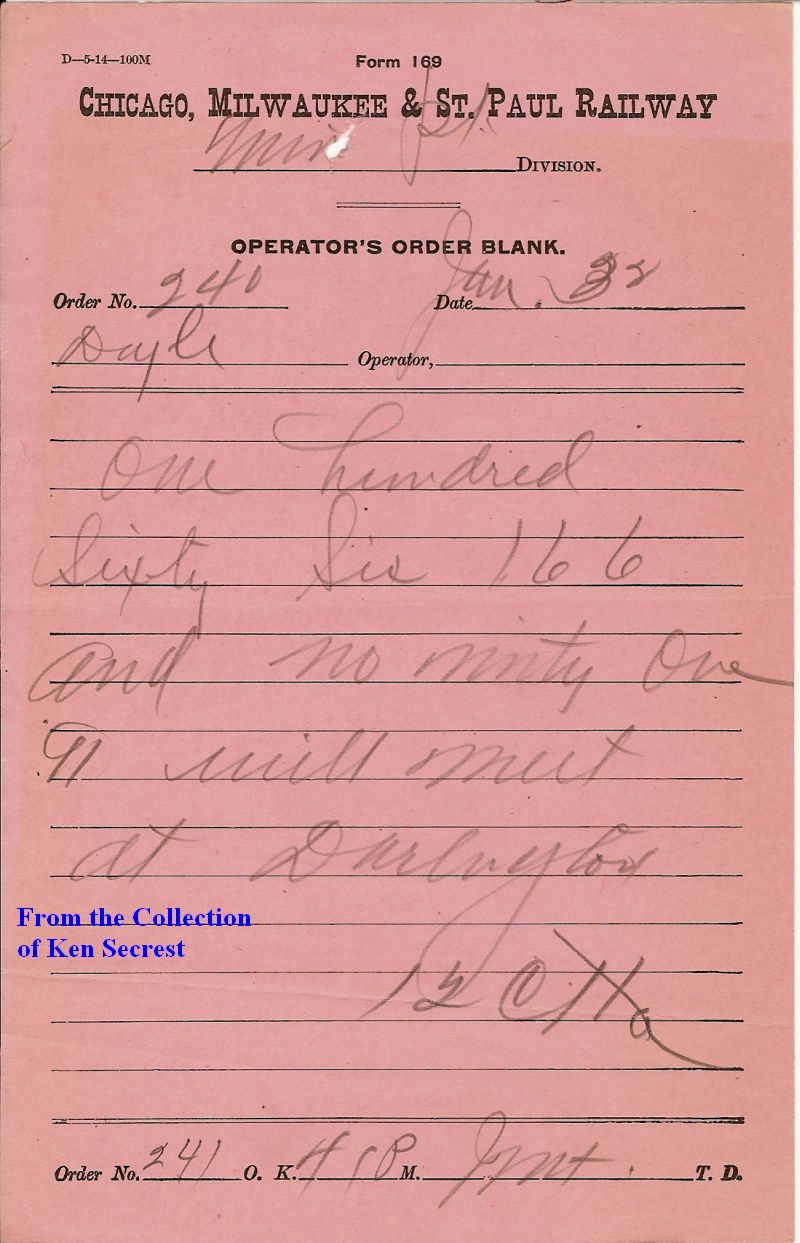 D—5-14—100M
Form 169
CHICAGO, MILWAUKEE & ST. PAUL RAILWAY
Min Pt. DIVISION.
OPERATOR'S ORDER BLANK.
Order No. 240 Date Jan. 22
Doyle Operator,
One hundred
Sixty Six 166
and no ninty One
91 will meet
at Darlington
12
Order No. 241 O. K. 4 18 P M. JMt. T. D.
From the Collection
of Ken Secrest